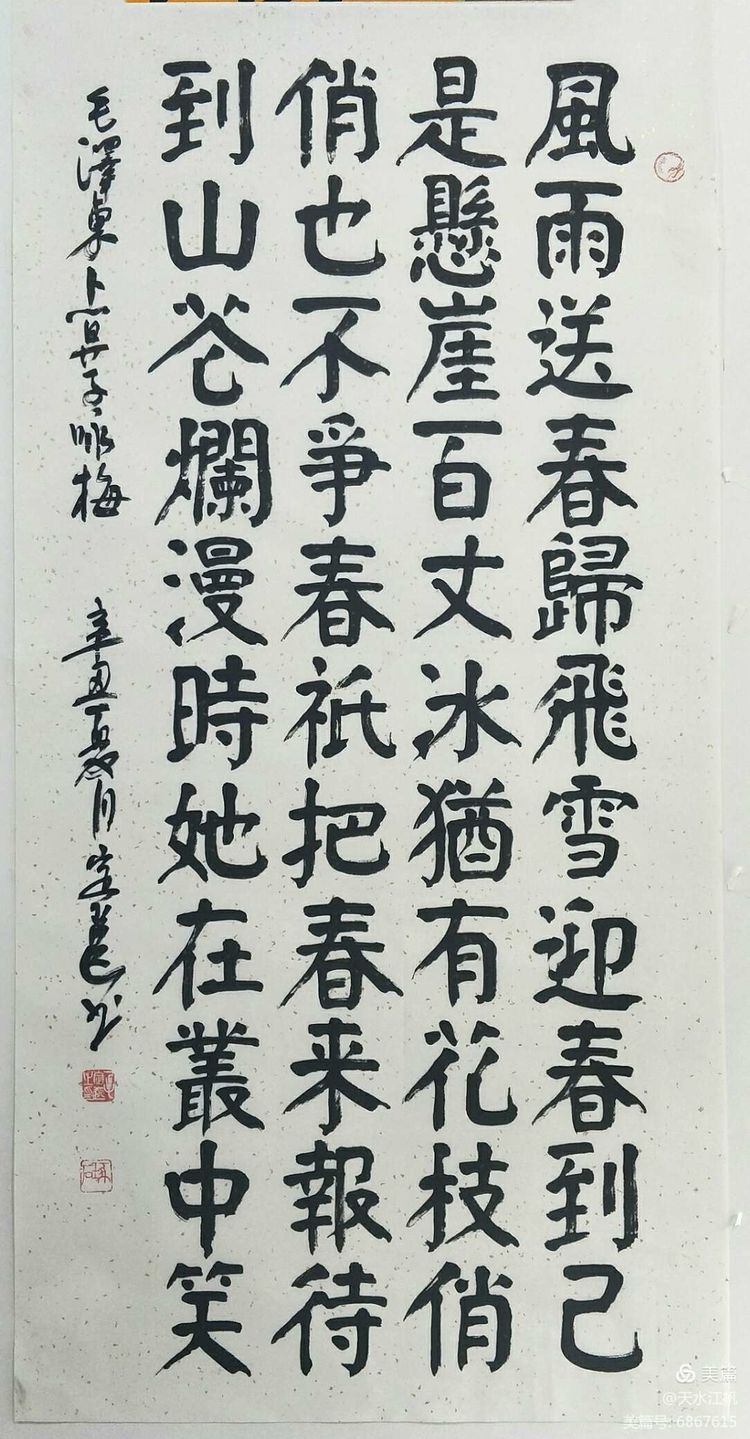 風雨送春歸飛雪迎春到己
是懸崖百丈冰猶有花枝俏
俏也不爭春祇把春来報待
到山花爛漫時她在叢中笑
毛澤東卜算子咏梅 辛丑夏月
美篇
@天水江帆
美篇号:6867615